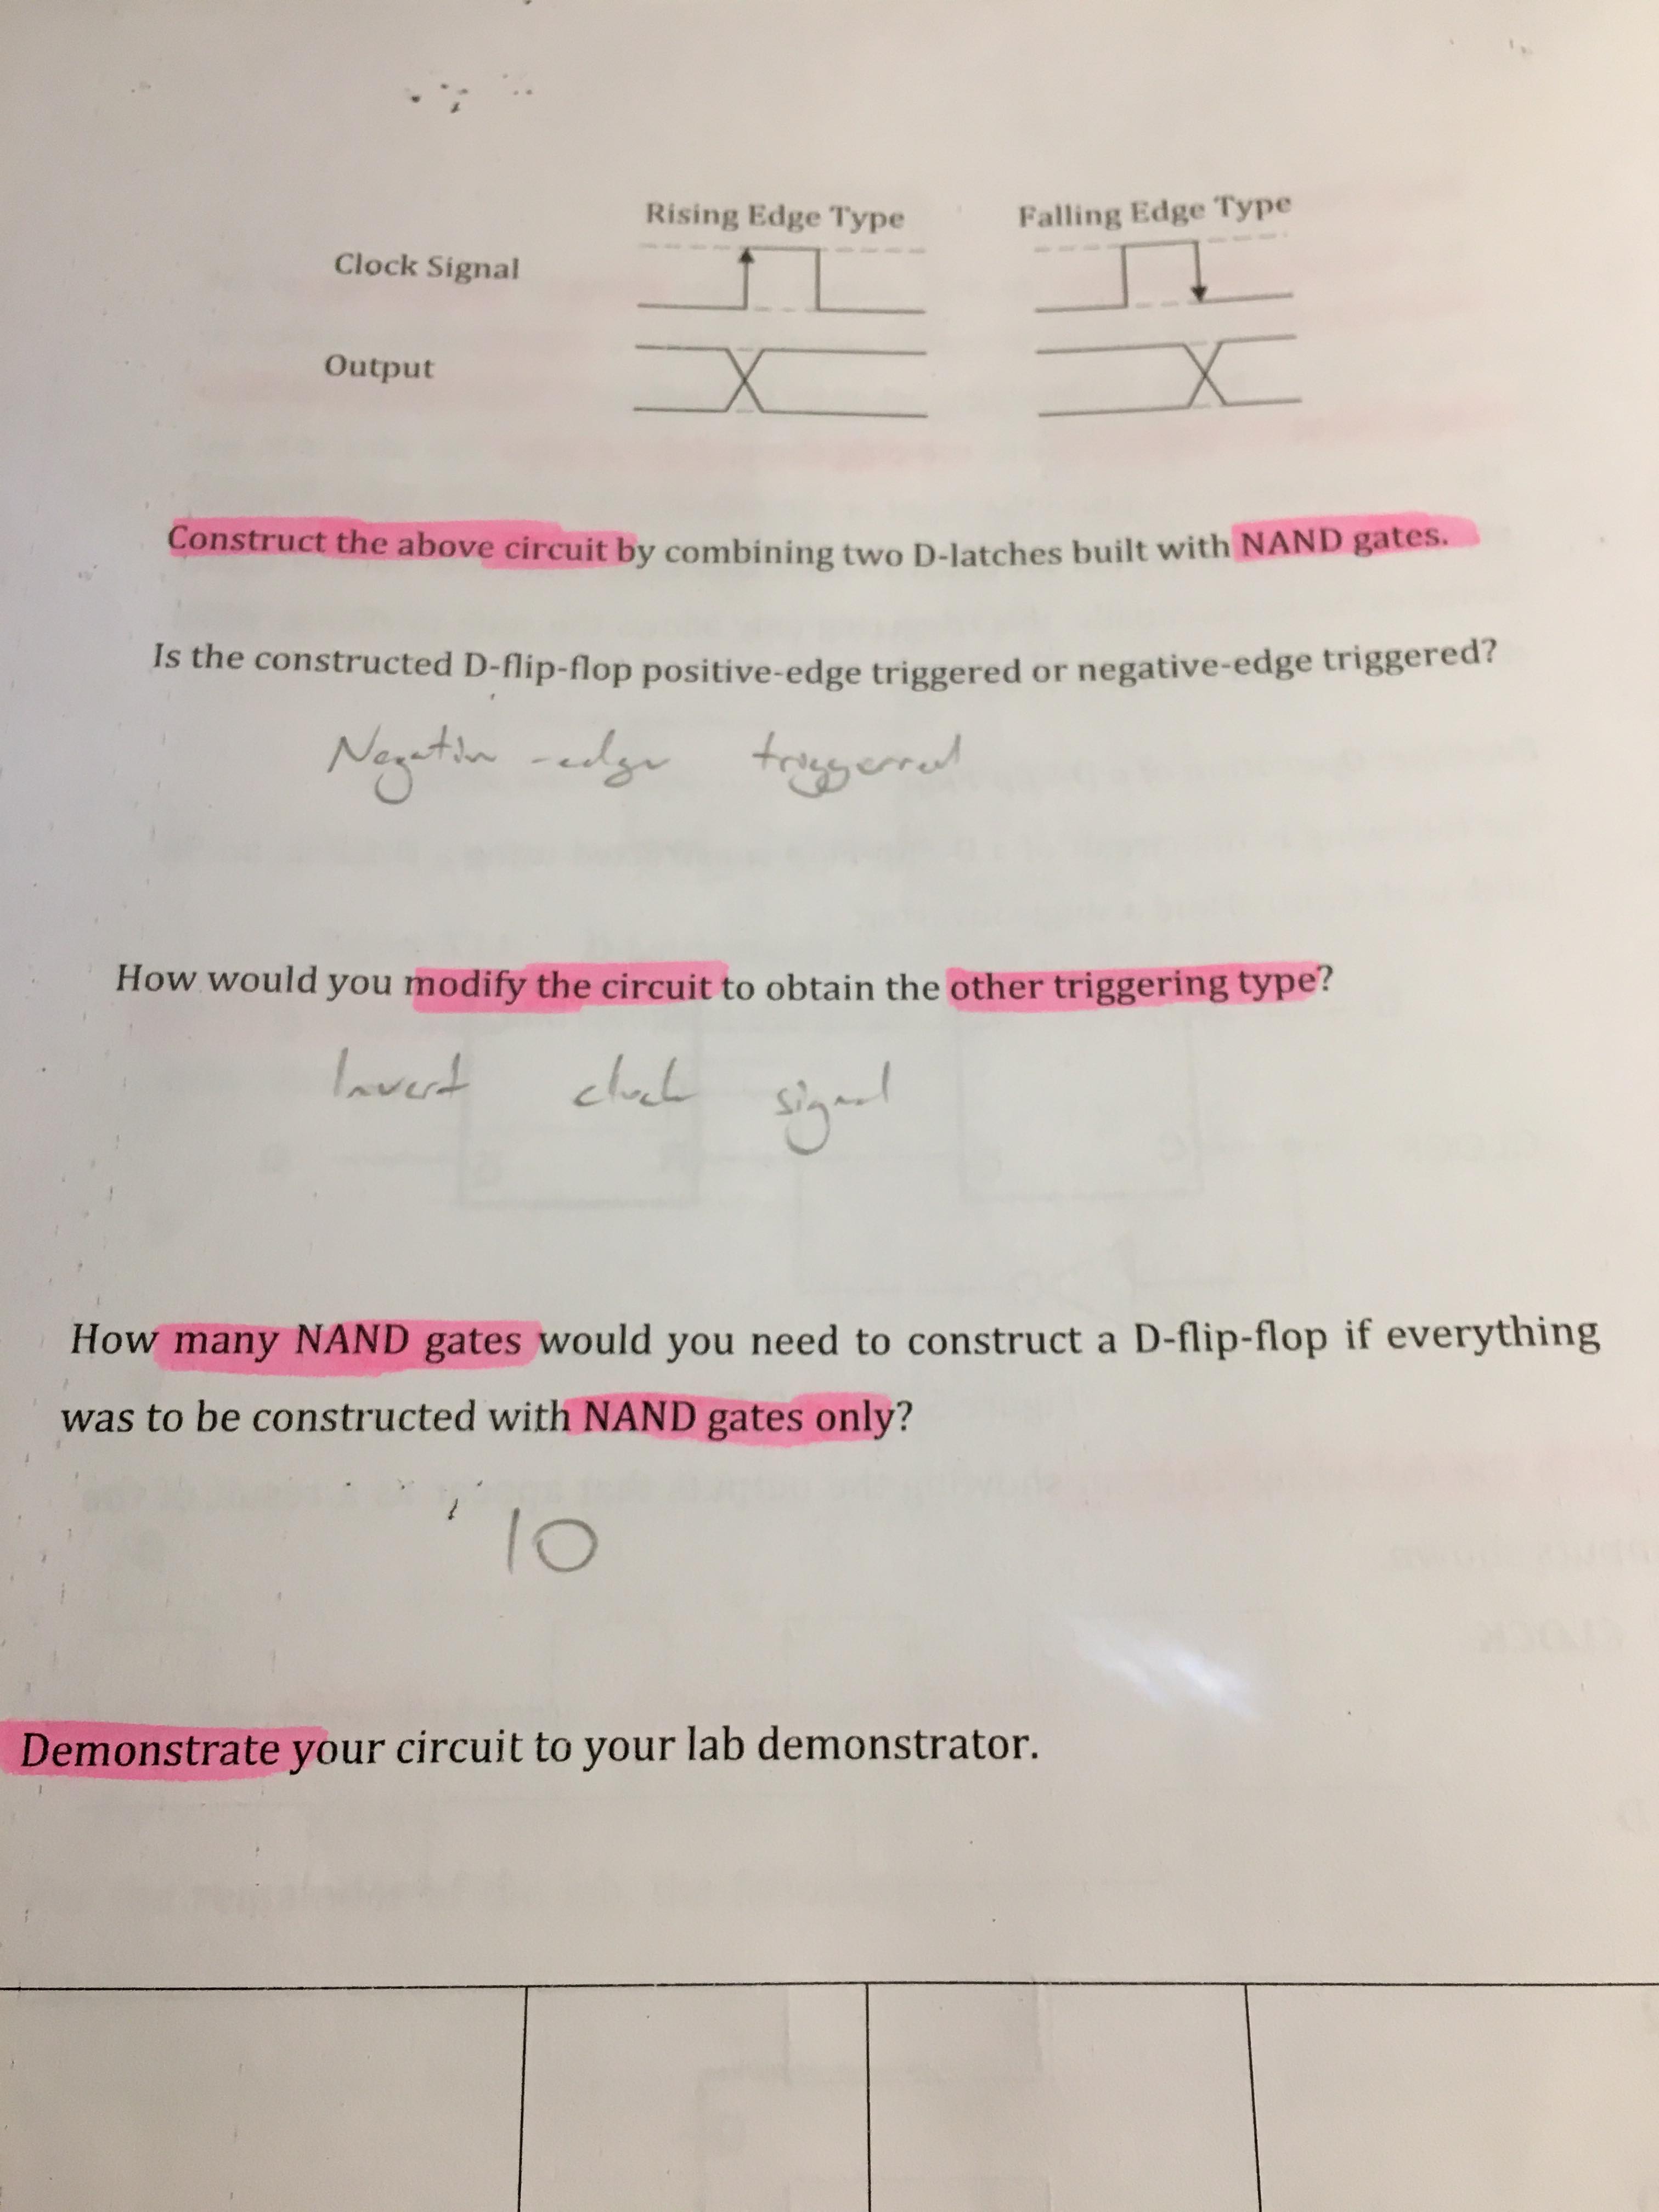 Rising Edge Type Falling Edge Type
Clock Signal
Output
Construct the above circuit by combining two D-latches built with NAND gates.
Is the constructed D-flip-flop positive-edge triggered or negative-edge triggered?
Negative -edge triggerred
How would you modify the circuit to obtain the other triggering type?
Invert clock signal
How many NAND gates would you need to construct a D-flip-flop if everything
was to be constructed with NAND gates only?
10
Demonstrate your circuit to your lab demonstrator.